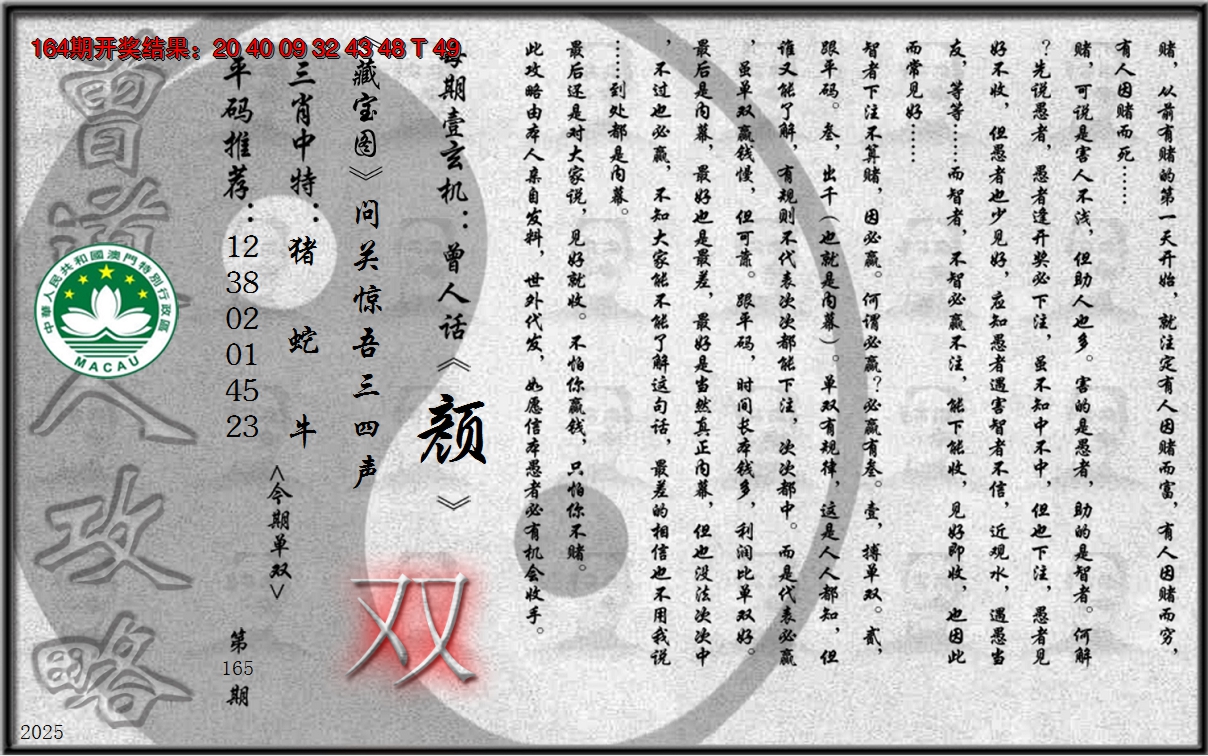 164期开奖结果：20 40 09 32 43 48 T 49
赌，从前有赌的第一天开始，就注定有人因赌而富，有人因赌而穷，
有人因赌而死……
赌，可说是害人不浅，但助人也多。害的是愚者，助的是智者。何解
？先说愚者，愚者逢开奖必下注，虽不知中不中，但也下注，愚者见
好不收，但愚者也少见好，应知愚者遇害智者不信，近观水，遇愚当
友，等等……而智者，不智必赢不注，能下能收，见好即收，也因此
而常见好……
智者下注不算赌，因必赢。何谓必赢？必赢有叁。壹，搏单双。贰，
跟平码。叁，出千（也就是内幕）。单双有规律，这是人人都知，但
谁又能了解，有规则不代表次次都能下注，次次都中。而是代表必赢
，虽单双赢钱慢，但可靠。跟平码，时间长本钱多，利润比单双好。
最后是内幕，最好也是最差，最好是当然真正内幕，但也没法次次中
，不过也必赢，不知大家能不能了解这句话，最差的相信也不用我说
……到处都是内幕。
最后还是对大家说，见好就收。不怕你赢钱，只怕你不赌。
此攻略由本人亲自发料，世外代发，如愿信本愚者必有机会收手。
每期壹玄机：曾人话《颜》
《藏宝图》问关惊吾三四声
双
三肖中特：猪 蛇 牛
<今期单双>
平码推荐：12 38 02 01 45 23
第165期
曾道人攻略
中華人民共和國澳門特別行政區
MACAU
2025